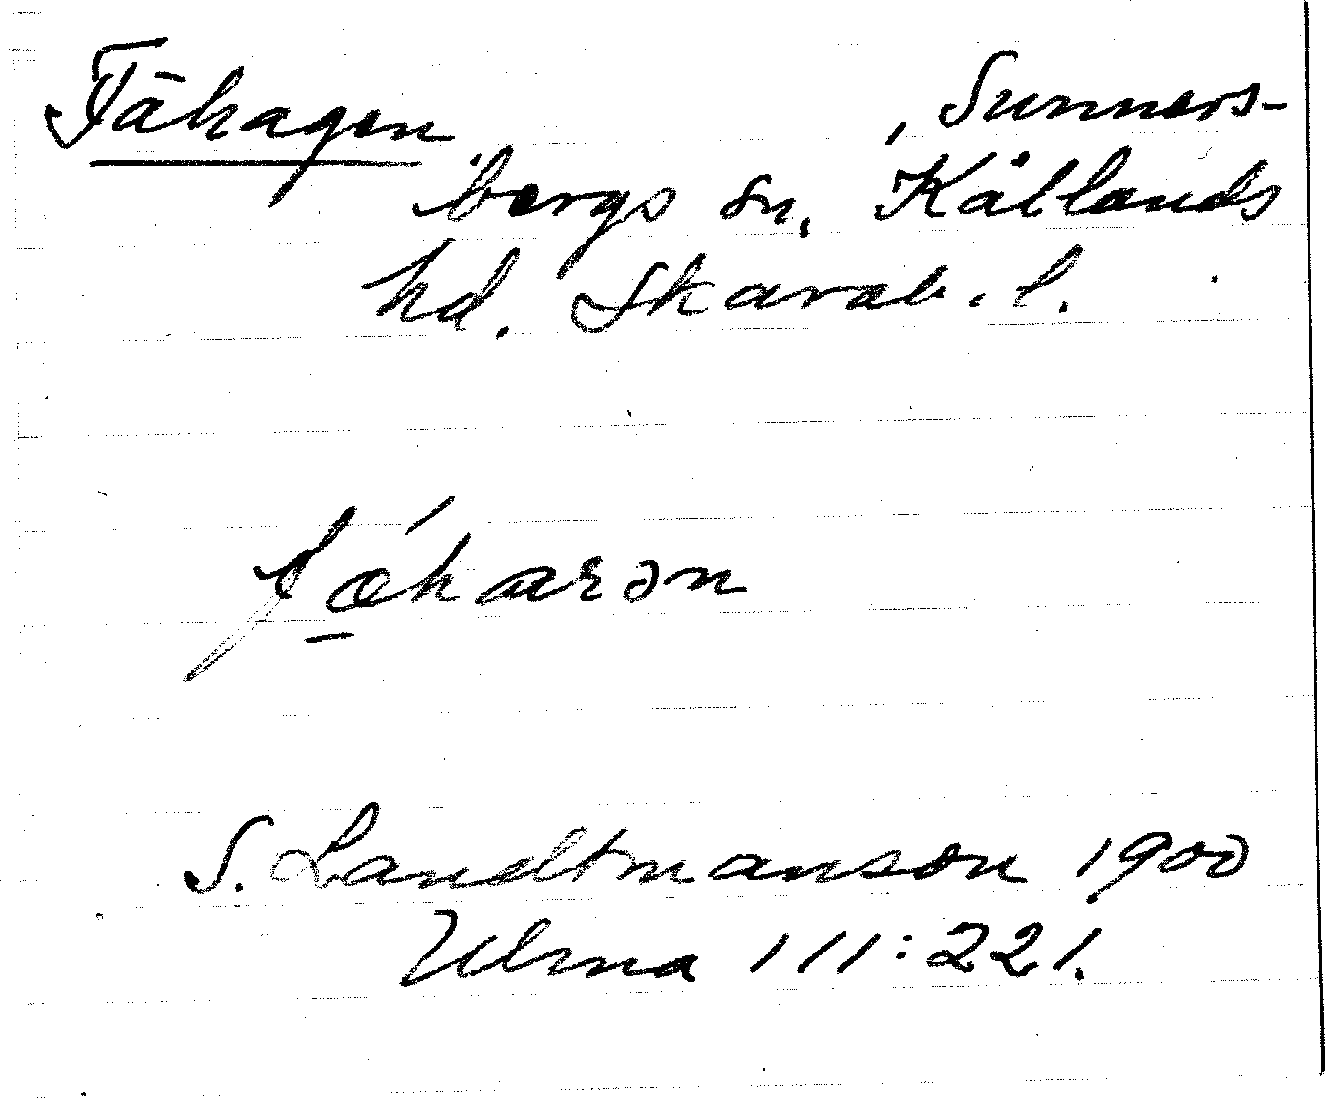 Fähagen, Sunners-
bergs sn, Kållands
hd. Skarab. l.
S. Landtmanson 1900
Ulma 111:221.